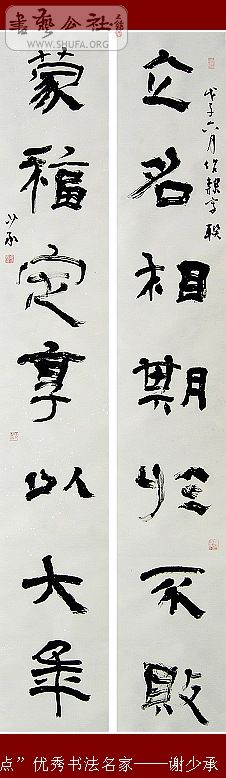 書藝公社
WWW.SHUFA.ORG
立名相期於不敗
戊子六月
蒙福定享以大年
少承
点”优秀书法名家——谢少承